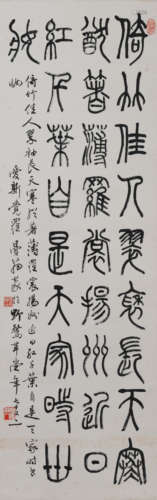 倚竹佳人翠袖長天寒
猶著薄羅裳揚州近日
紅千葉自是天家時世
妝
倚竹佳人翠袖長天寒猶著薄羅裳揚州近日紅千葉自是天家時世
妝
愛新覺羅